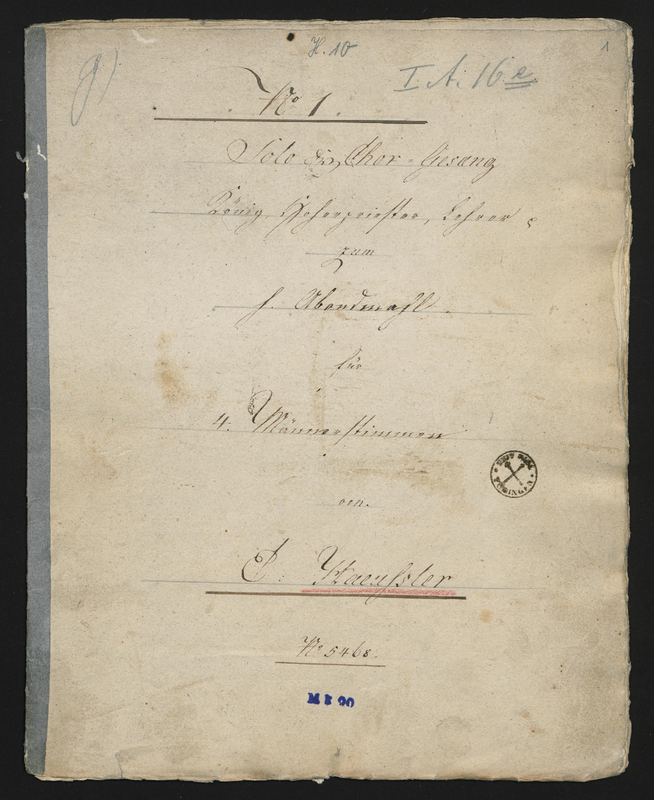 g)
H. 10
1
I. A. 16 e
No 1.
Solo Chor-Gesang
König, Hoherpriester, Lehrer
zum
h. Abendmahl.
für
4. Männerstimmen
von
Haeussler
No 5468.
M E 90